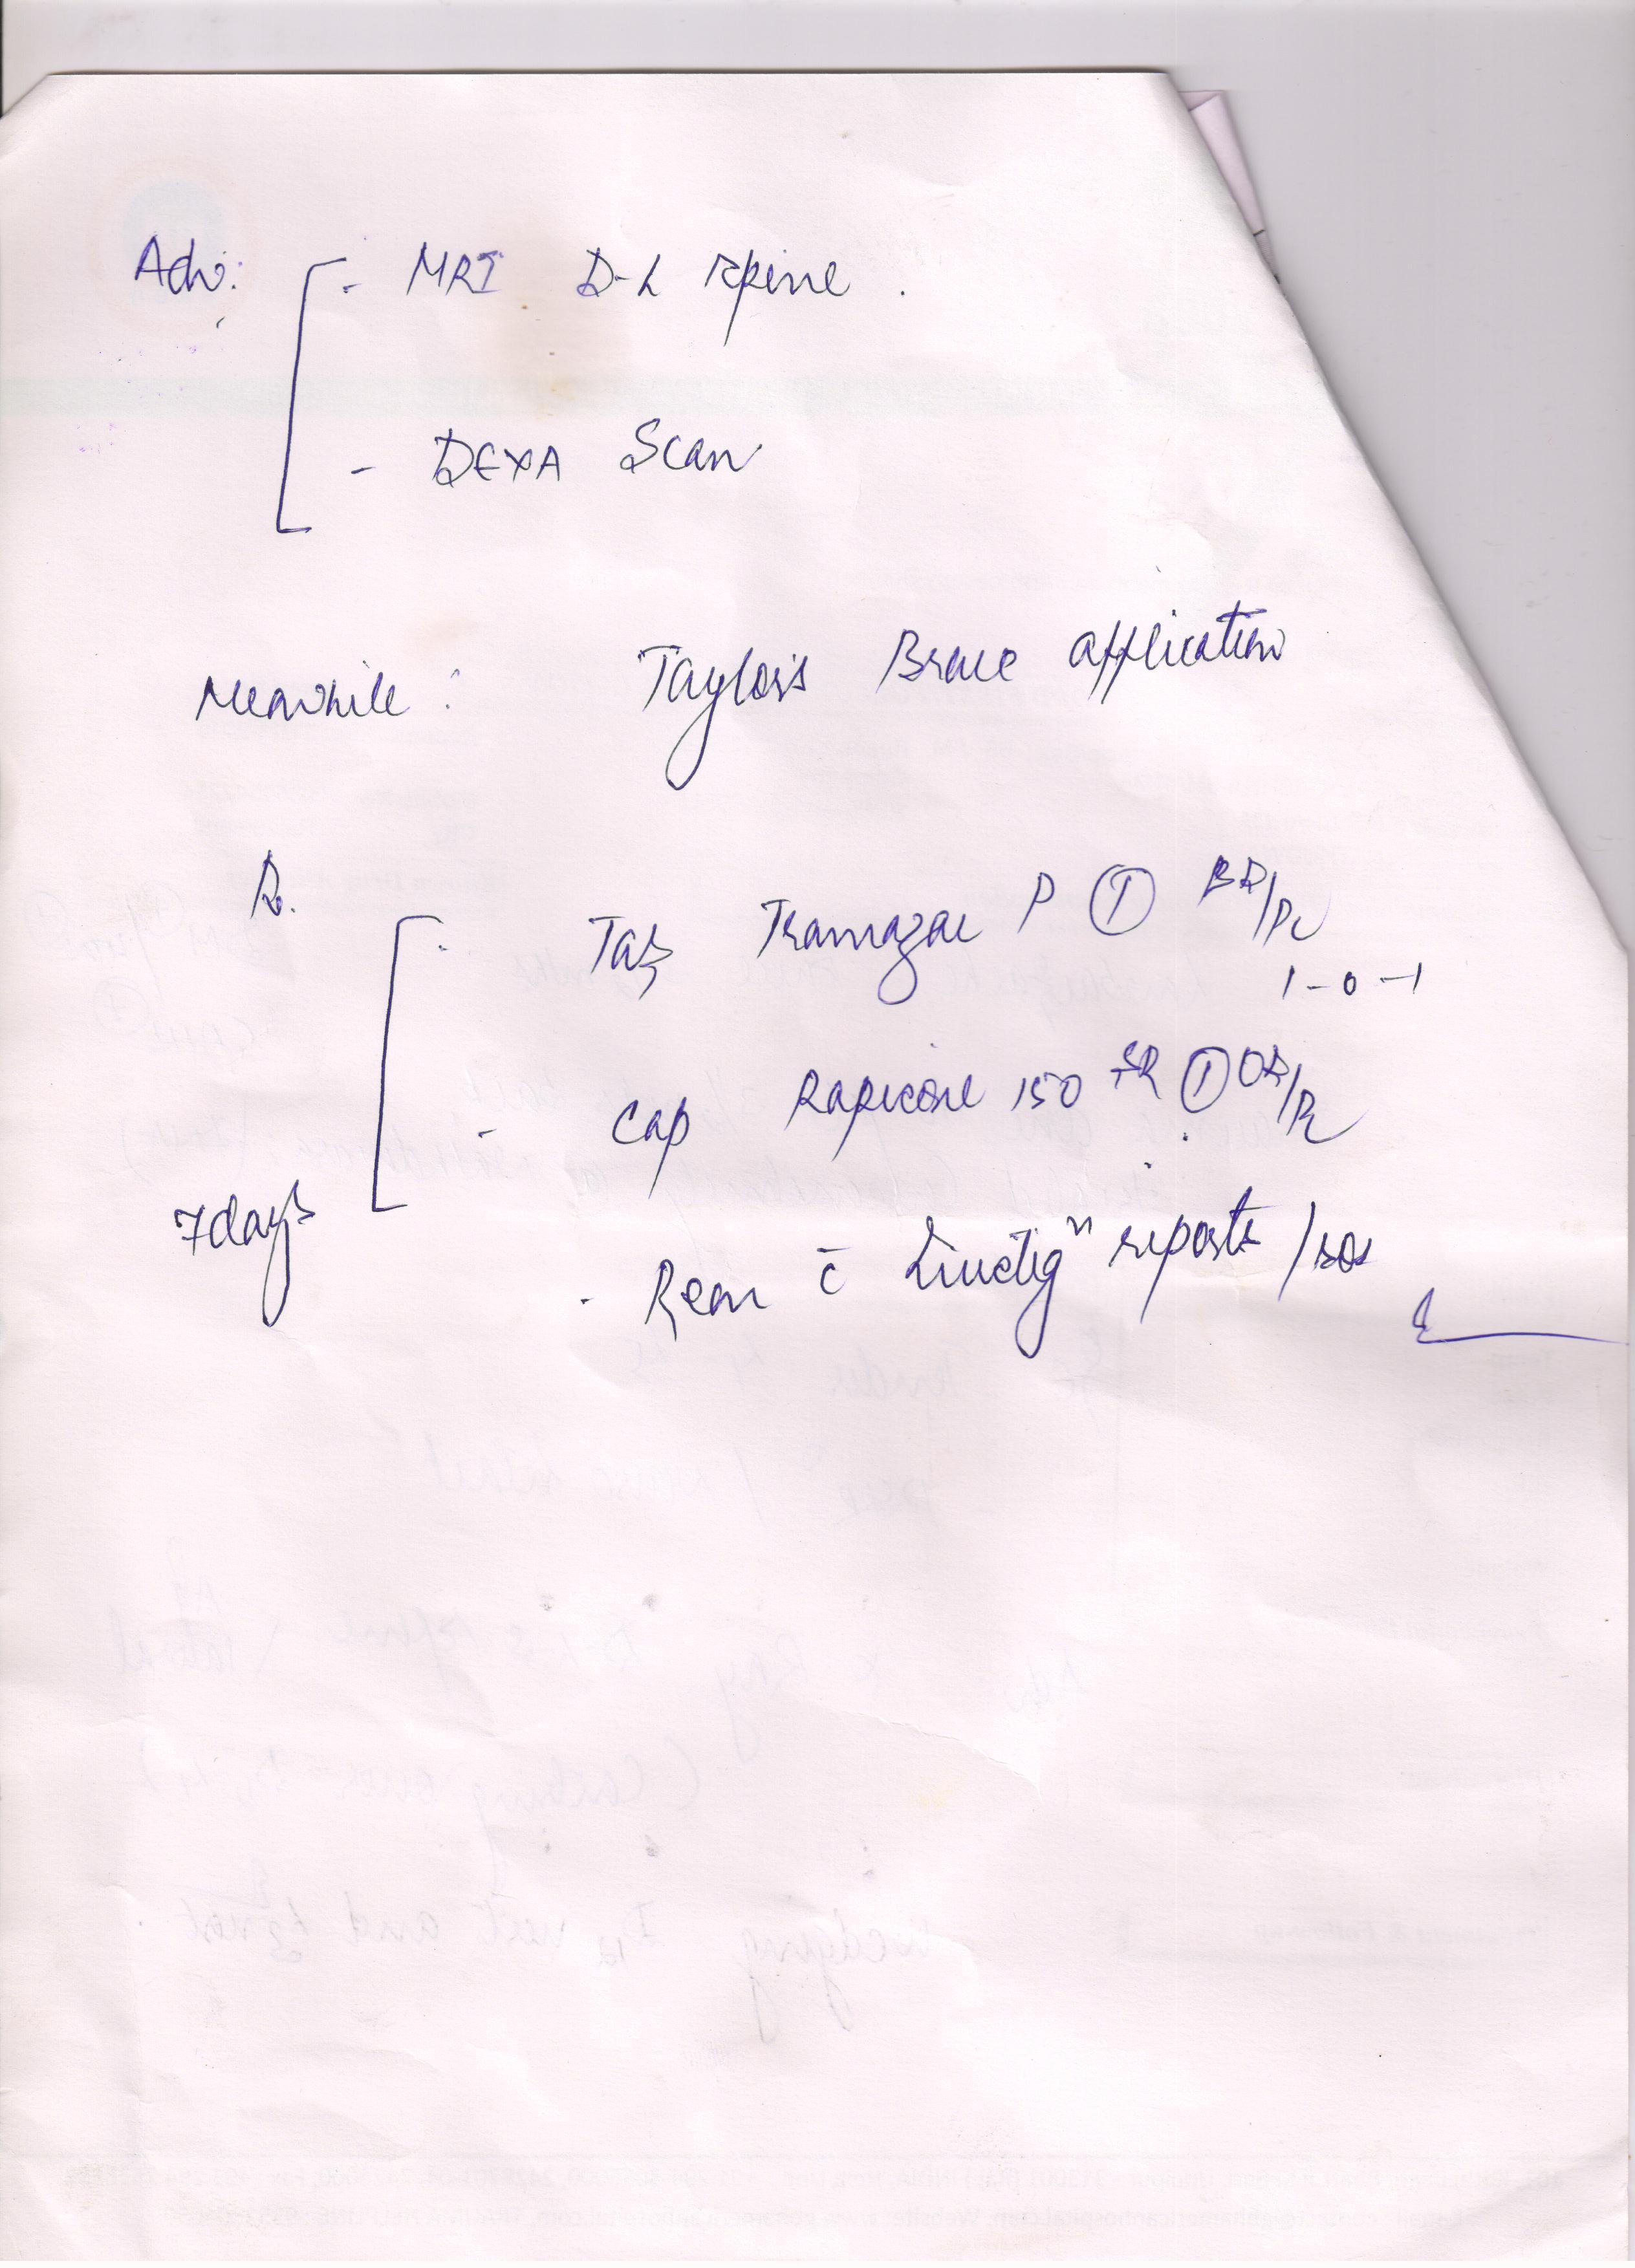 Adv: - MRI D-L spine.
- DEXA Scan
Meawhile: Taylor's Brace application
R.
- Tab Tramazac P ① BD/PC
1-0-1
- Cap 150 SR ① OD/
7days
- Rear c̄ reports /sos